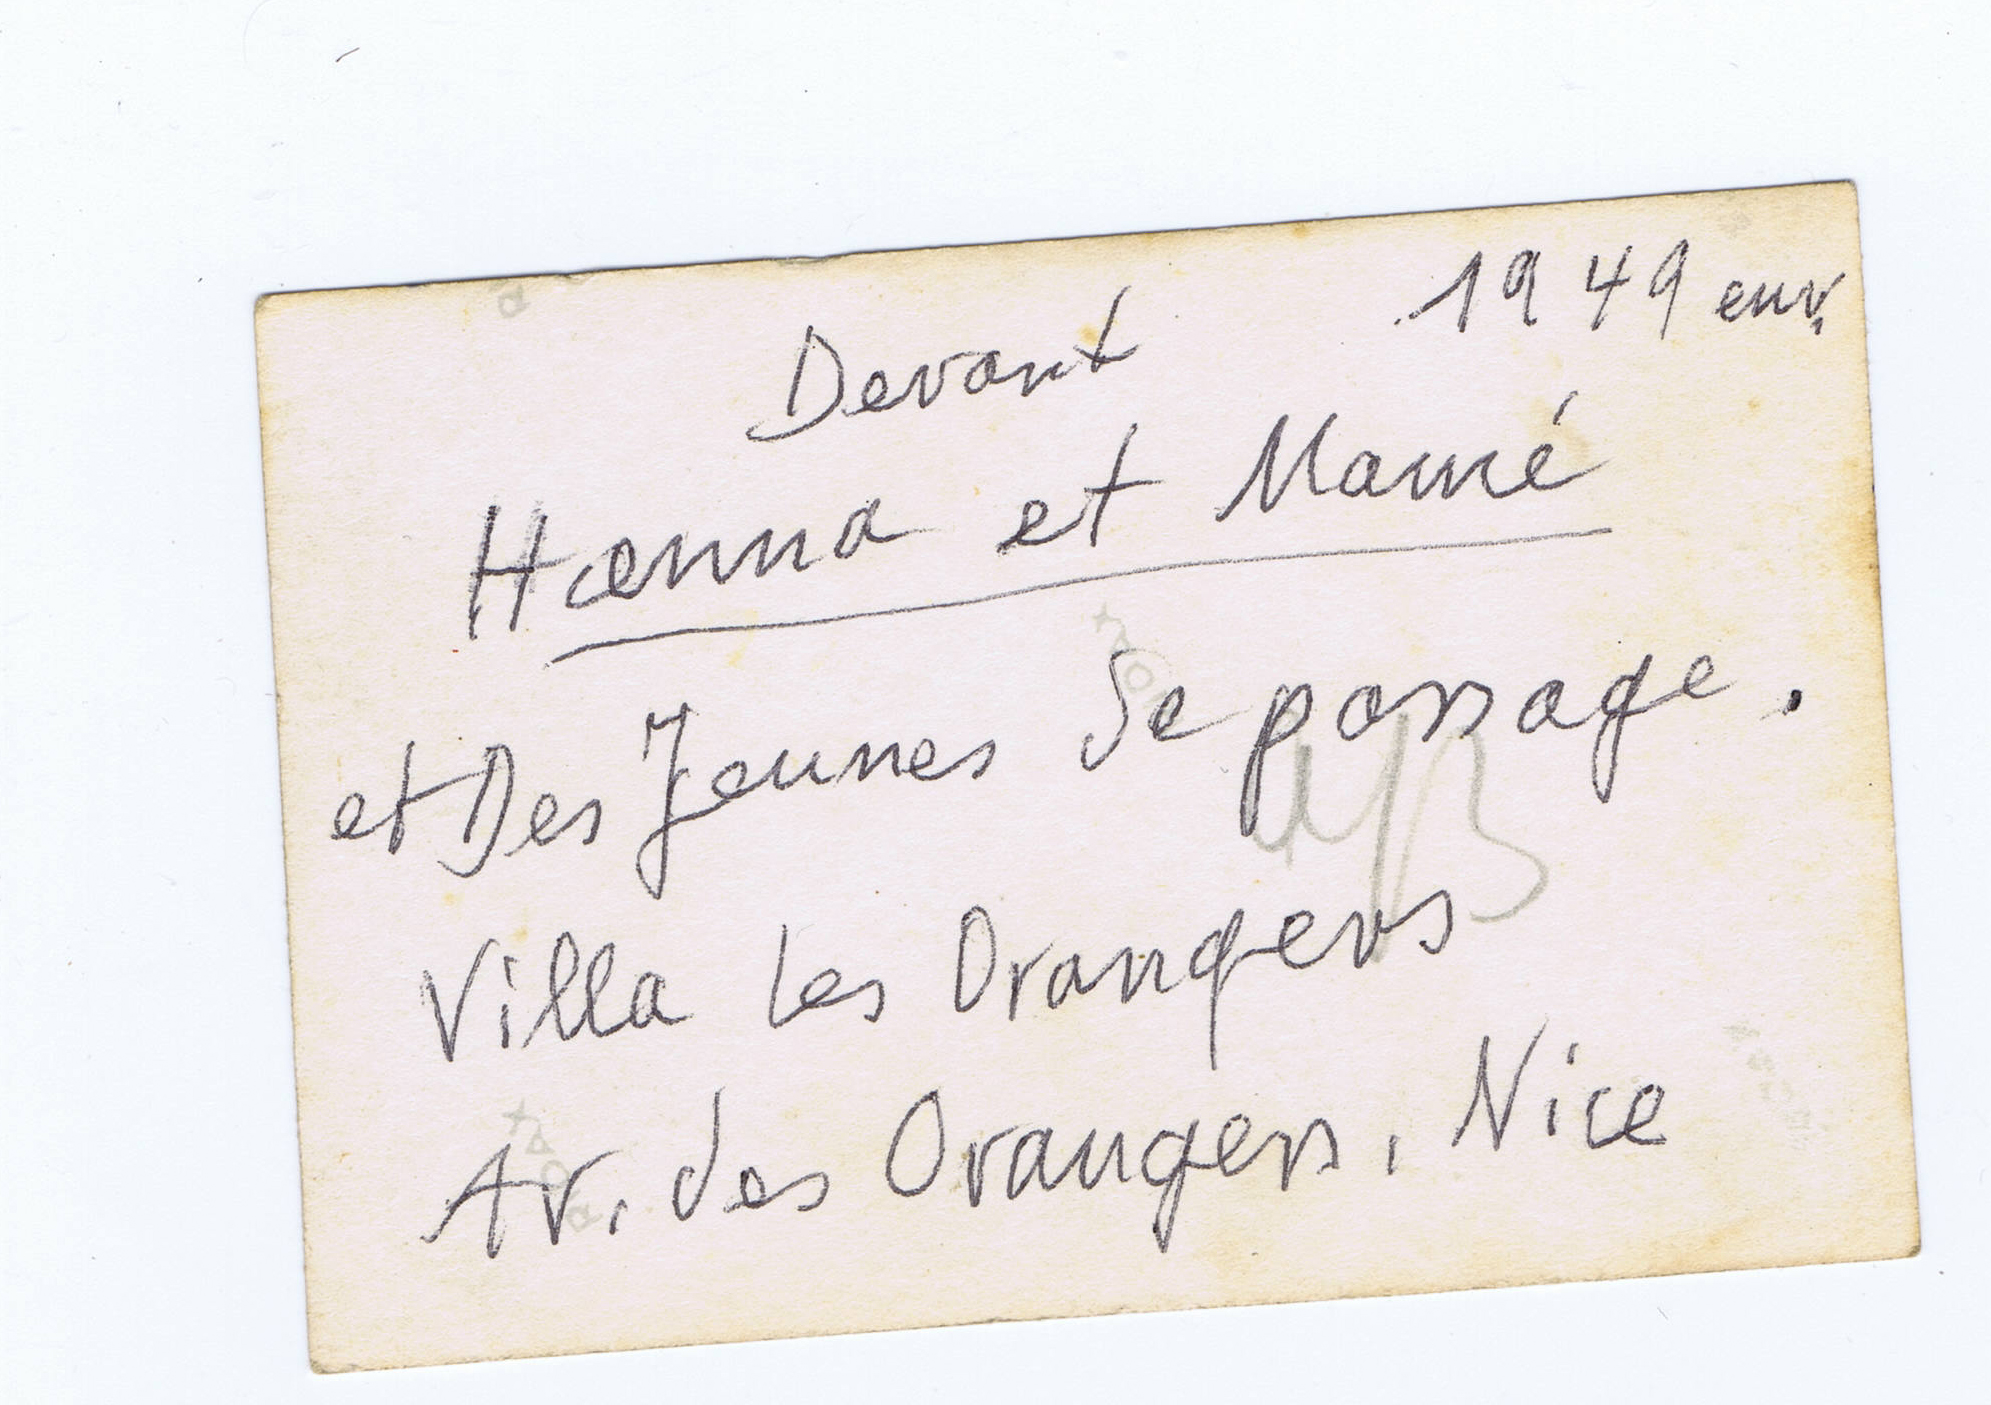 1949 env.
Devant
Hanna et Mamé
et Des Jeunes de passage.
Villa Les Orangers
Av. des Orangers, Nice